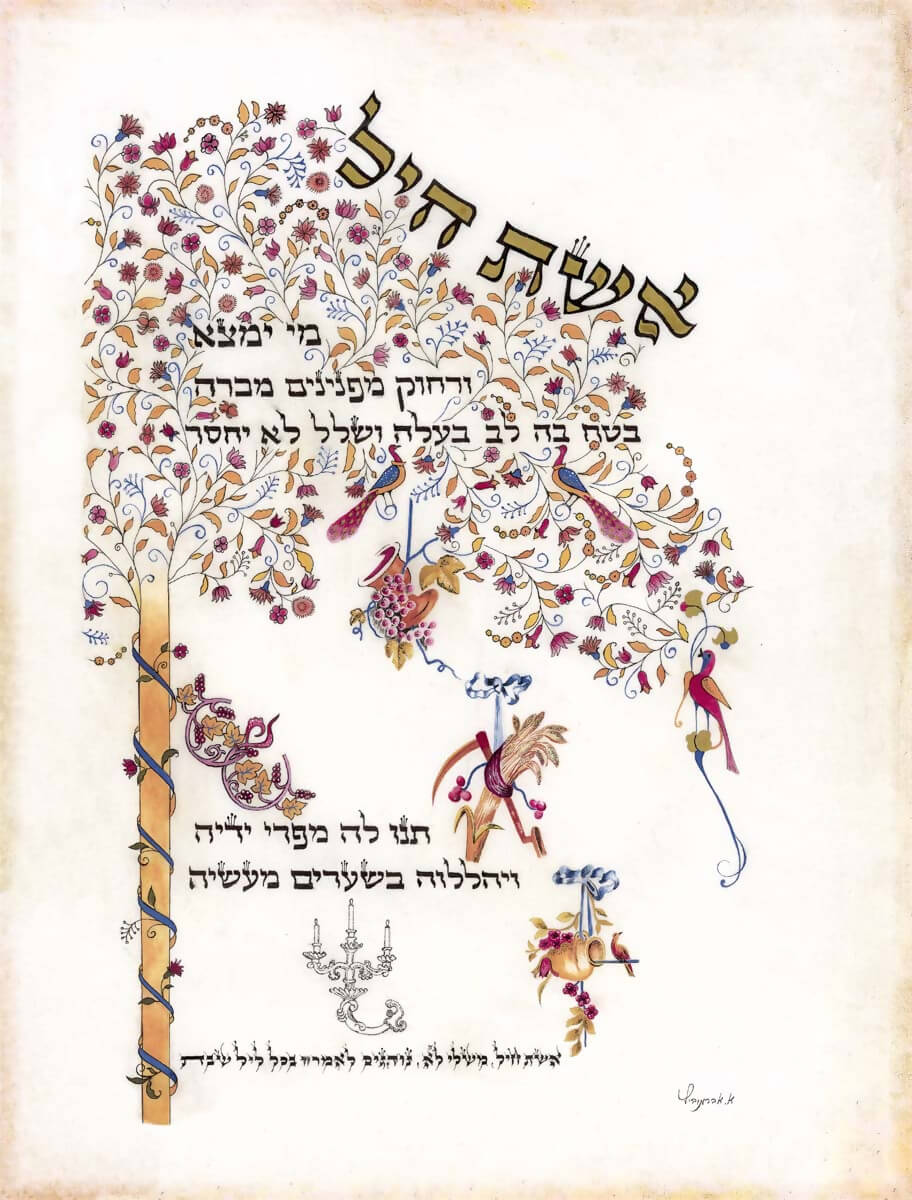 אשת חיל
מי ימצא
ורחוק מפנינים מכרה
בטח בה לב בעלה ושלל לא יחסר
תנו לה מפרי ידיה
ויהללוה בשערים מעשיה
אשת חיל, משלי לא, נוהגים לאמרה בכל ליל שבת